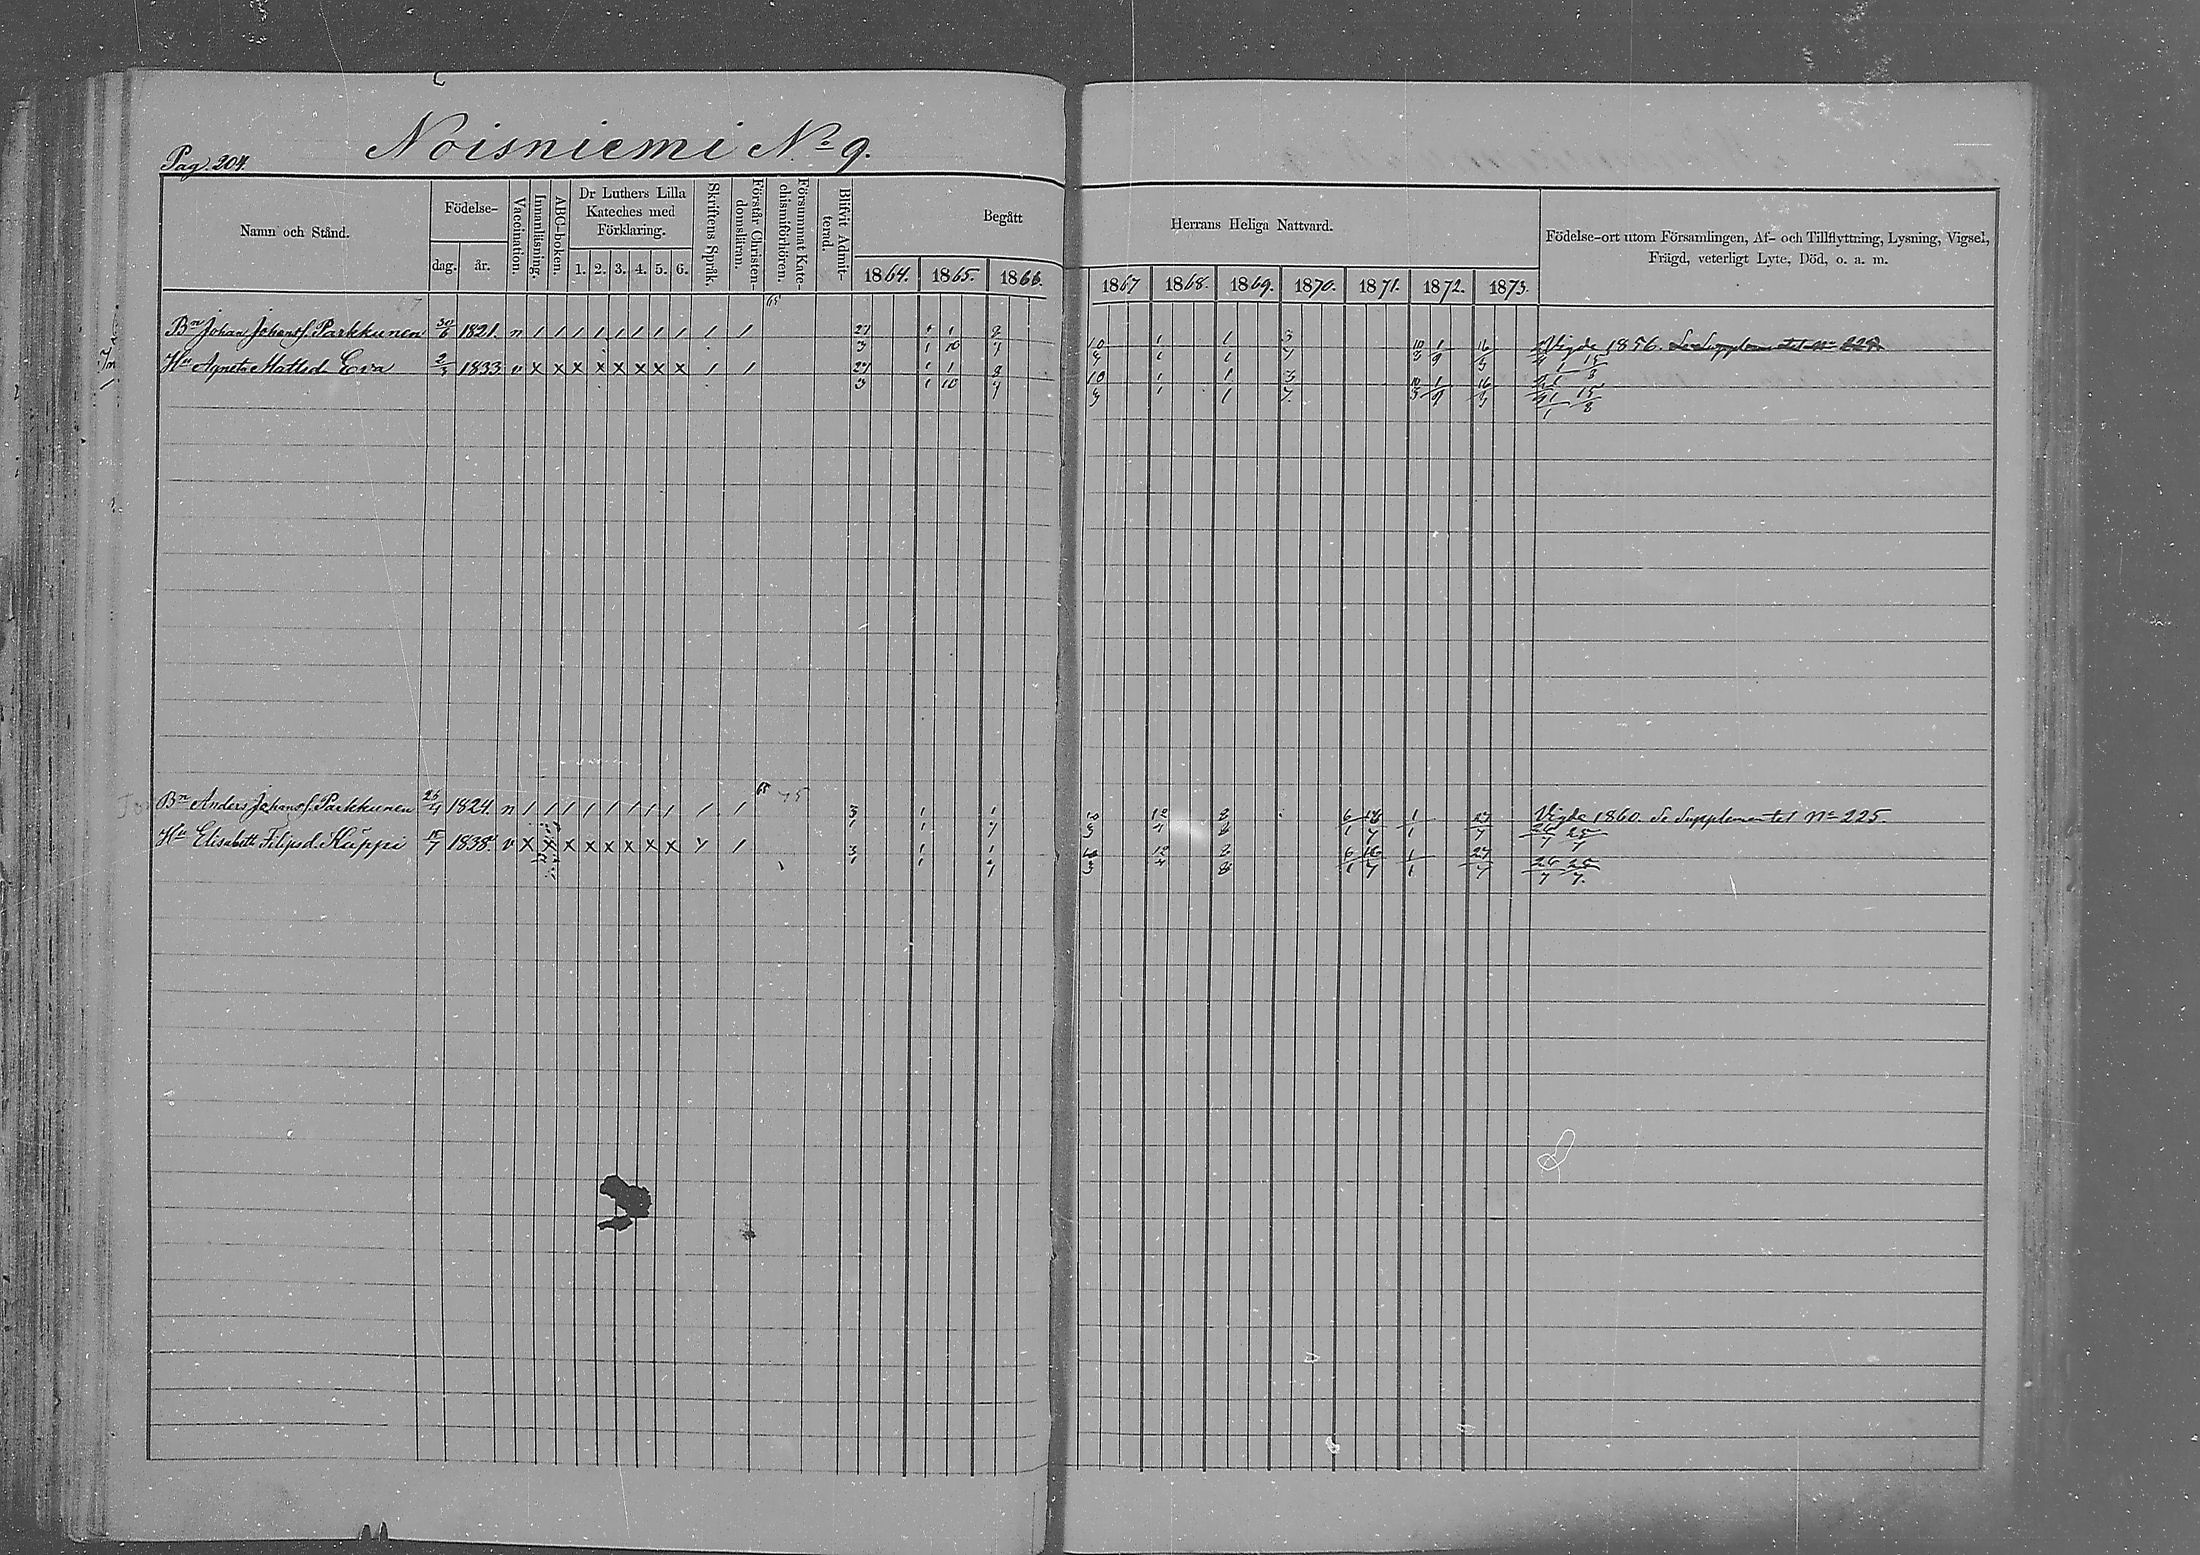 Pag. 204.
Noisniemi No 9.
Namn och Stånd.
Födelse-
dag.
år.
Vaccination.
Innanläsning.
ABC-boken.
Dr Luthers Lilla
Kateches med
Förklaring.
1. 2. 3. 4. 5. 6.
Skriftens Språk.
Förstår Christen-
domsläran.
Försummat Kate-
chismiförhören.
Blifvit Admit-
terad.
Begått
Herrans Heliga Nattvard.
1864. 1865. 1866.
1867 1868. 1869. 1870. 1871. 1872. 1873.
Födelse-ort utom Församlingen, Af- och Tillflyttning, Lysning, Vigsel,
Frägd, veterligt Lyte, Död, o. a. m.
67
65
Bn Johan Johanss. Parkkunen 30/6 1821. n 1 1 1 1 1 1 1 1 1 1 27/3 1/1 1/10 10/3 1/1 1/1 3/7 10/3 1/9 Vigde 1856. Se Supplementet No
Hu Agneta Mattsd. Eva 1833 v x x x x x x x x x 1 1 27/3 1/1 1/10 8/7 10/3 1/1 1/1 3/7 10/3 1/9 15/8
65 75
Bn Anders Johanss. Parkkunen 1824. n 1 1 1 1 1 1 1 1 1 1 3/1 1/1 1/7 10/3 12/4 2/8 6/1 16/7 1/1 27/7 Vigde 1860. Se Supplementet No 225.
Hu Elisabeth Filipsd. Huppi 15/7 1838. v x x x x x x x x 1 3/1 1/1 1/7 10/3 12/4 2/8 6/1 16/7 1/1 27/7 26/7 25/7.